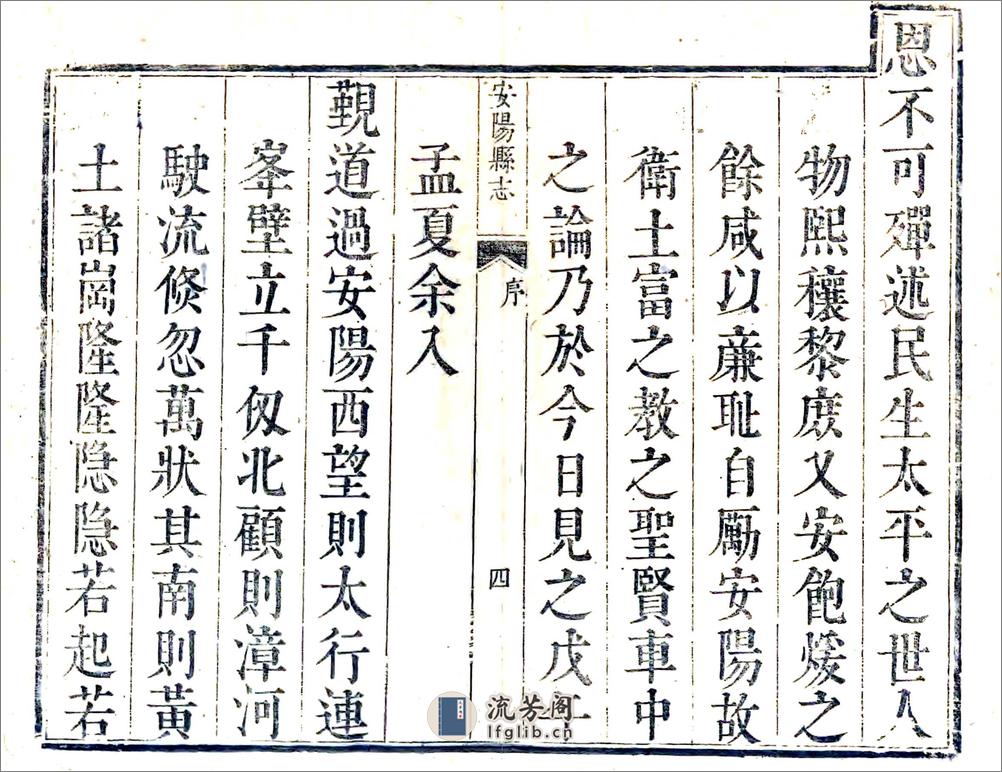 恩不可殫述民生太平之世人
物熙穰黎庶又安飽煖之
餘咸以廉耻自勵安陽故
衛土富之教之聖賢車中
之論乃於今日見之戊
安陽縣志
序
四
孟夏余入
覲道過安陽西望則太行連
峯壁立千仭北顧則漳河
駛流倐忽萬狀其南則黃
土諸崗隆隆隐隐若起若
流芳阁
lfglib.cn